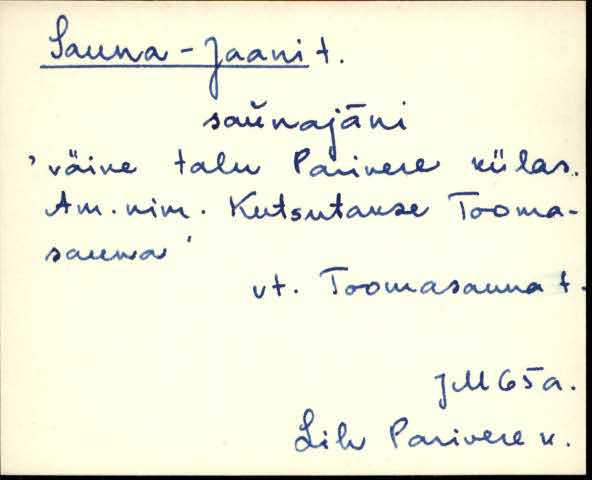 Sauna-Jaani t.
sau̬najāni
'väike talu Parivere külas.
Am. nim. Kutsutakse Tooma-
sauna'
vt. Toomasauna t.
JM 65a.
Lih Parivere k.